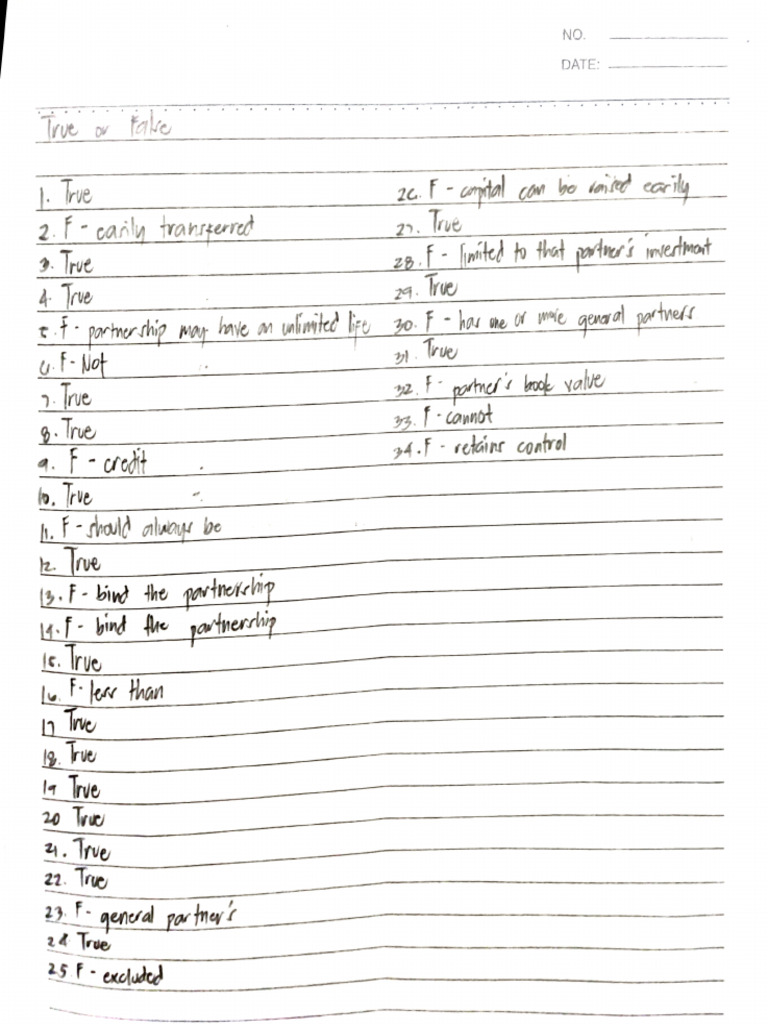 NO.
DATE:
True or False
1. True
2. F - easily transferred
3. True
4. True
5. F - partnership may have an unlimited life
6. F - Not
7. True
8. True
9. F - credit
10. True
11. F - should always be
12. True
13. F - bind the partnership
14. F - bind the partnership
15. True
16. F - less than
17 True
18. True
19 True
20 True
21. True
22. True
23. F - general partner's
24 True
25 F - excluded
26. F - capital can be raised easily
27. True
28. F - limited to that partner's investment
29. True
30. F - has one or more general partners
31. True
32. F - partner's book value
33. F - cannot
34. F - retains control